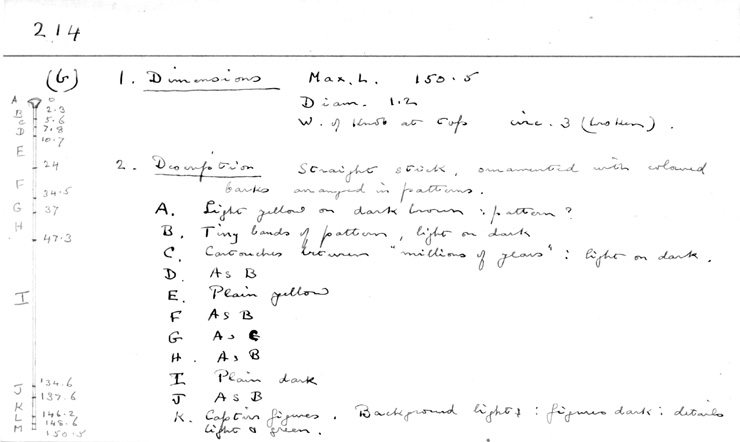 214
(G) 1. Dimensions Max. L. 150.5
Diam. 1.2
W. of Knob at top circ. 3 (broken).
2. Description Straight stick, ornamented with coloured
barks arranged in patterns.
A. Light yellow on dark brown : pattern?
B. Tiny bands of pattern, light on dark
C. Cartouches between "millions of years" : light on dark.
D. As B
E. Plain yellow
F As B
G As C
H. As B
I Plain dark
J As B
K. Captive figures. Background light : figures dark : details
light & green.
A 0
B 2.3
C 5.6
D 7.8
10.7
E
24
F
34.5
G 37
H
47.3
I
134.6
J
137.6
K
146.2
L 148.6
M 150.5